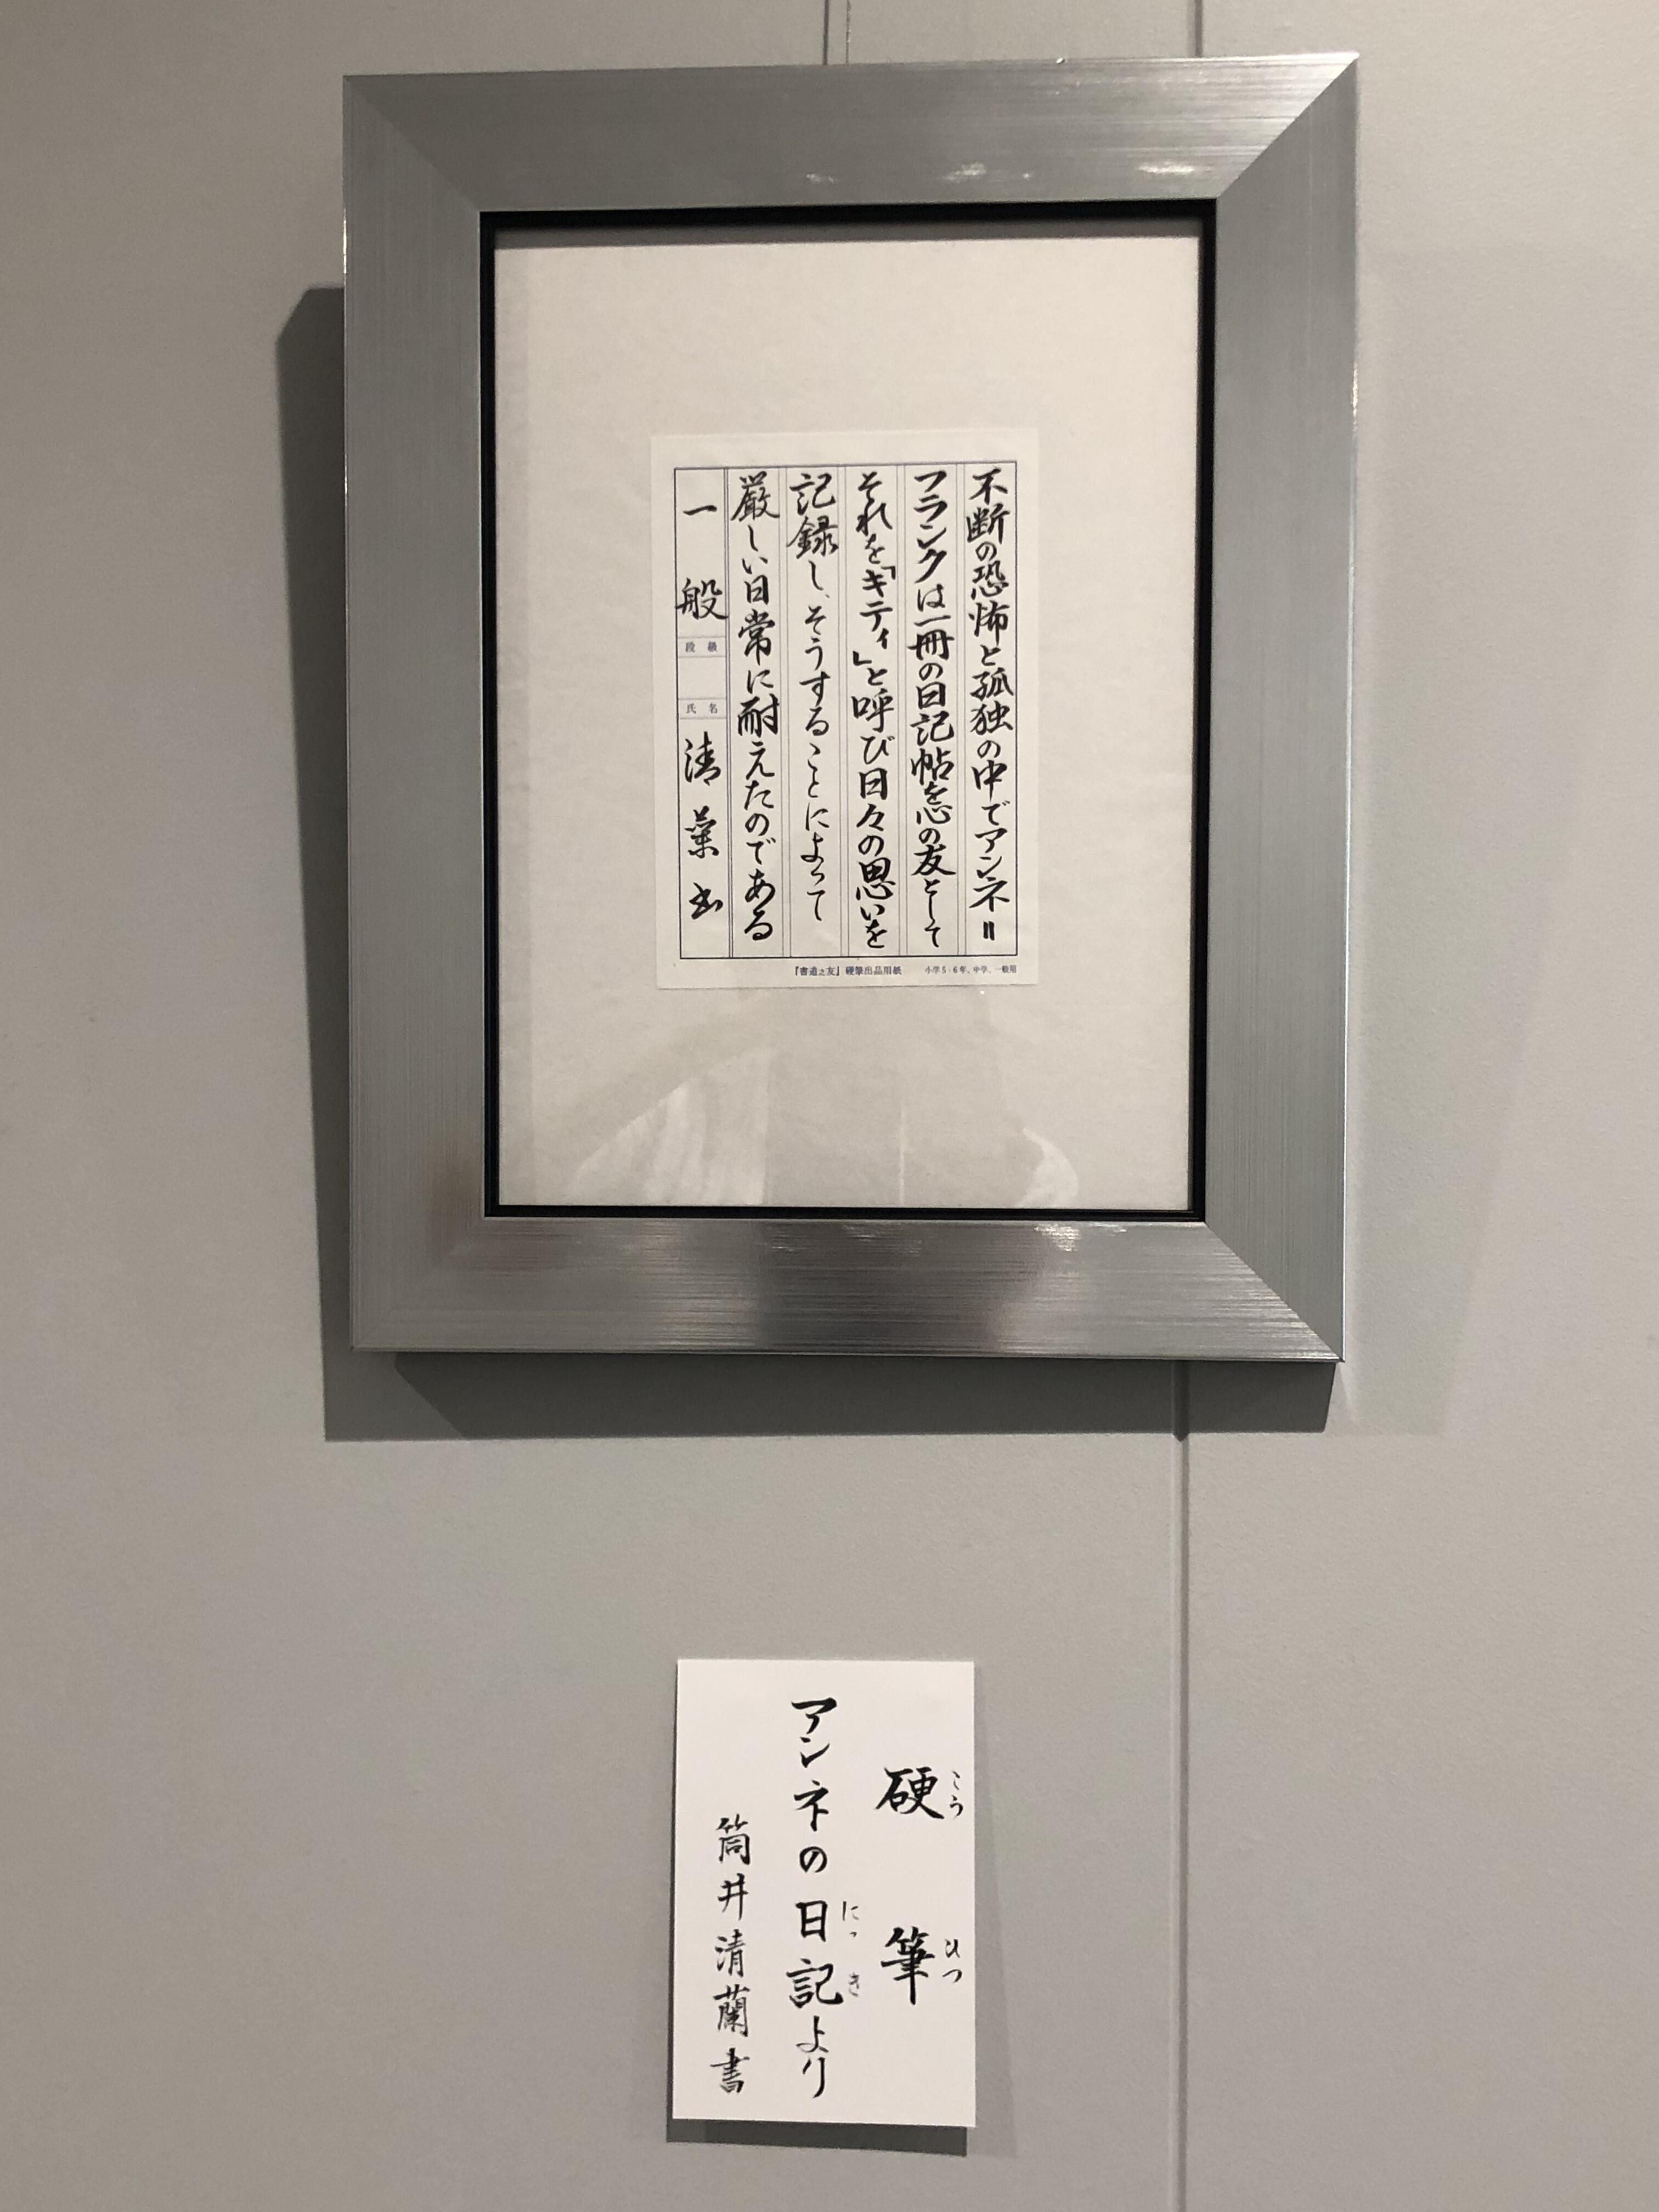 不断の恐怖と孤独の中でアンネ＝
フランクは一冊の日記帖を心の友として
それを「キティ」と呼び日々の思いを
記録し、そうすることによって
厳しい日常に耐えたのである
一般
段級
氏名
清蘭書
『書道之友』硬筆出品用紙
小学5・6年、中学、一般用
硬筆
こうひつ
アンネの日記より
にっき
筒井清蘭書